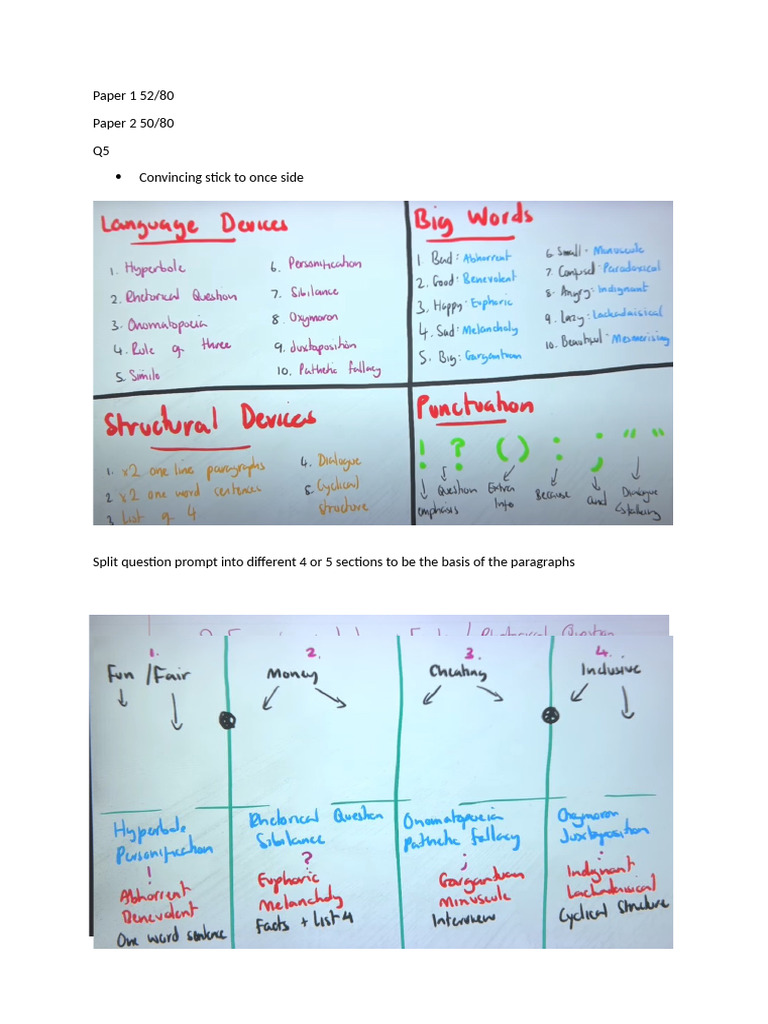 Paper 1 52/80
Paper 2 50/80
Q5
• Convincing stick to once side
Language Devices
1. Hyperbole
2. Rhetorical Question
3. Onomatopoeia
4. Rule of three
5. Simile
6. Personification
7. Sibilance
8. Oxymoron
9. Juxtaposition
10. Pathetic fallacy
Big Words
1. Bad: Abhorrent
2. Good: Benevolent
3. Happy: Euphoric
4. Sad: Melancholy
5. Big: Gargantuan
6. Small: Minuscule
7. Confused: Paradoxical
8. Angry: Indignant
9. Lazy: Lackadaisical
10. Beautiful: Mesmerising
Structural Devices
1. x2 one line paragraphs
2. x2 one word sentences
3. List of 4
4. Dialogue
5. Cyclical structure
Punctuation
! ? ( ) : ; " "
emphasis
Question
Extra Info
Because
and
Dialogue
Split question prompt into different 4 or 5 sections to be the basis of the paragraphs
Rhetorical Question
1.
Fun / Fair
2.
Money
3.
Cheating
4.
Inclusive
Hyperbole
Personification
!
Abhorrent
Benevolent
One word sentence
Rhetorical Question
Sibilance
?
Euphoric
Melancholy
Facts + List 4
Onomatopoeia
Pathetic fallacy
;
Gargantuan
Minuscule
Interview
Oxymoron
Juxtaposition
:
Indignant
Lackadaisical
Cyclical structure